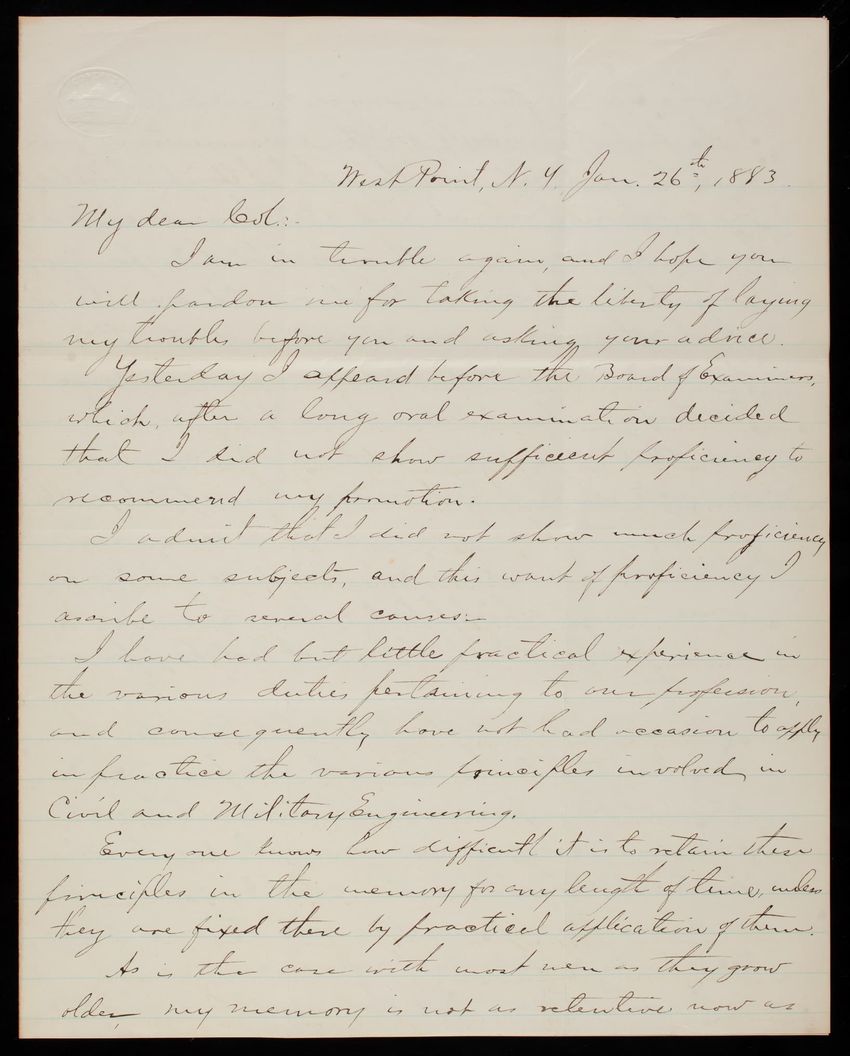 West Point, N. Y. Jan. 26th, 1883.
My dear Col.:-
I am in trouble again, and I hope you
will pardon me for taking the liberty of laying
my troubles before you and asking your advice.
Yesterday I appeard before the Board of Examiners,
which, after a long oral examination decided
that I did not show sufficient proficiency to
recommend my promotion.
I admit that I did not show much proficiency
on some subjects, and this want of proficiency I
ascribe to several causes:-
I have had but little practical experience in
the various duties pertaining to our profession,
and consequently have not had occasion to apply
in practice the various principles involved in
Civil and Military Engineering.
Every one knows how difficult it is to retain these
principles in the memory for any length of time, unless
they are fixed there by practical application of them.
As is the case with most men as they grow
older, my memory is not as retentive now as